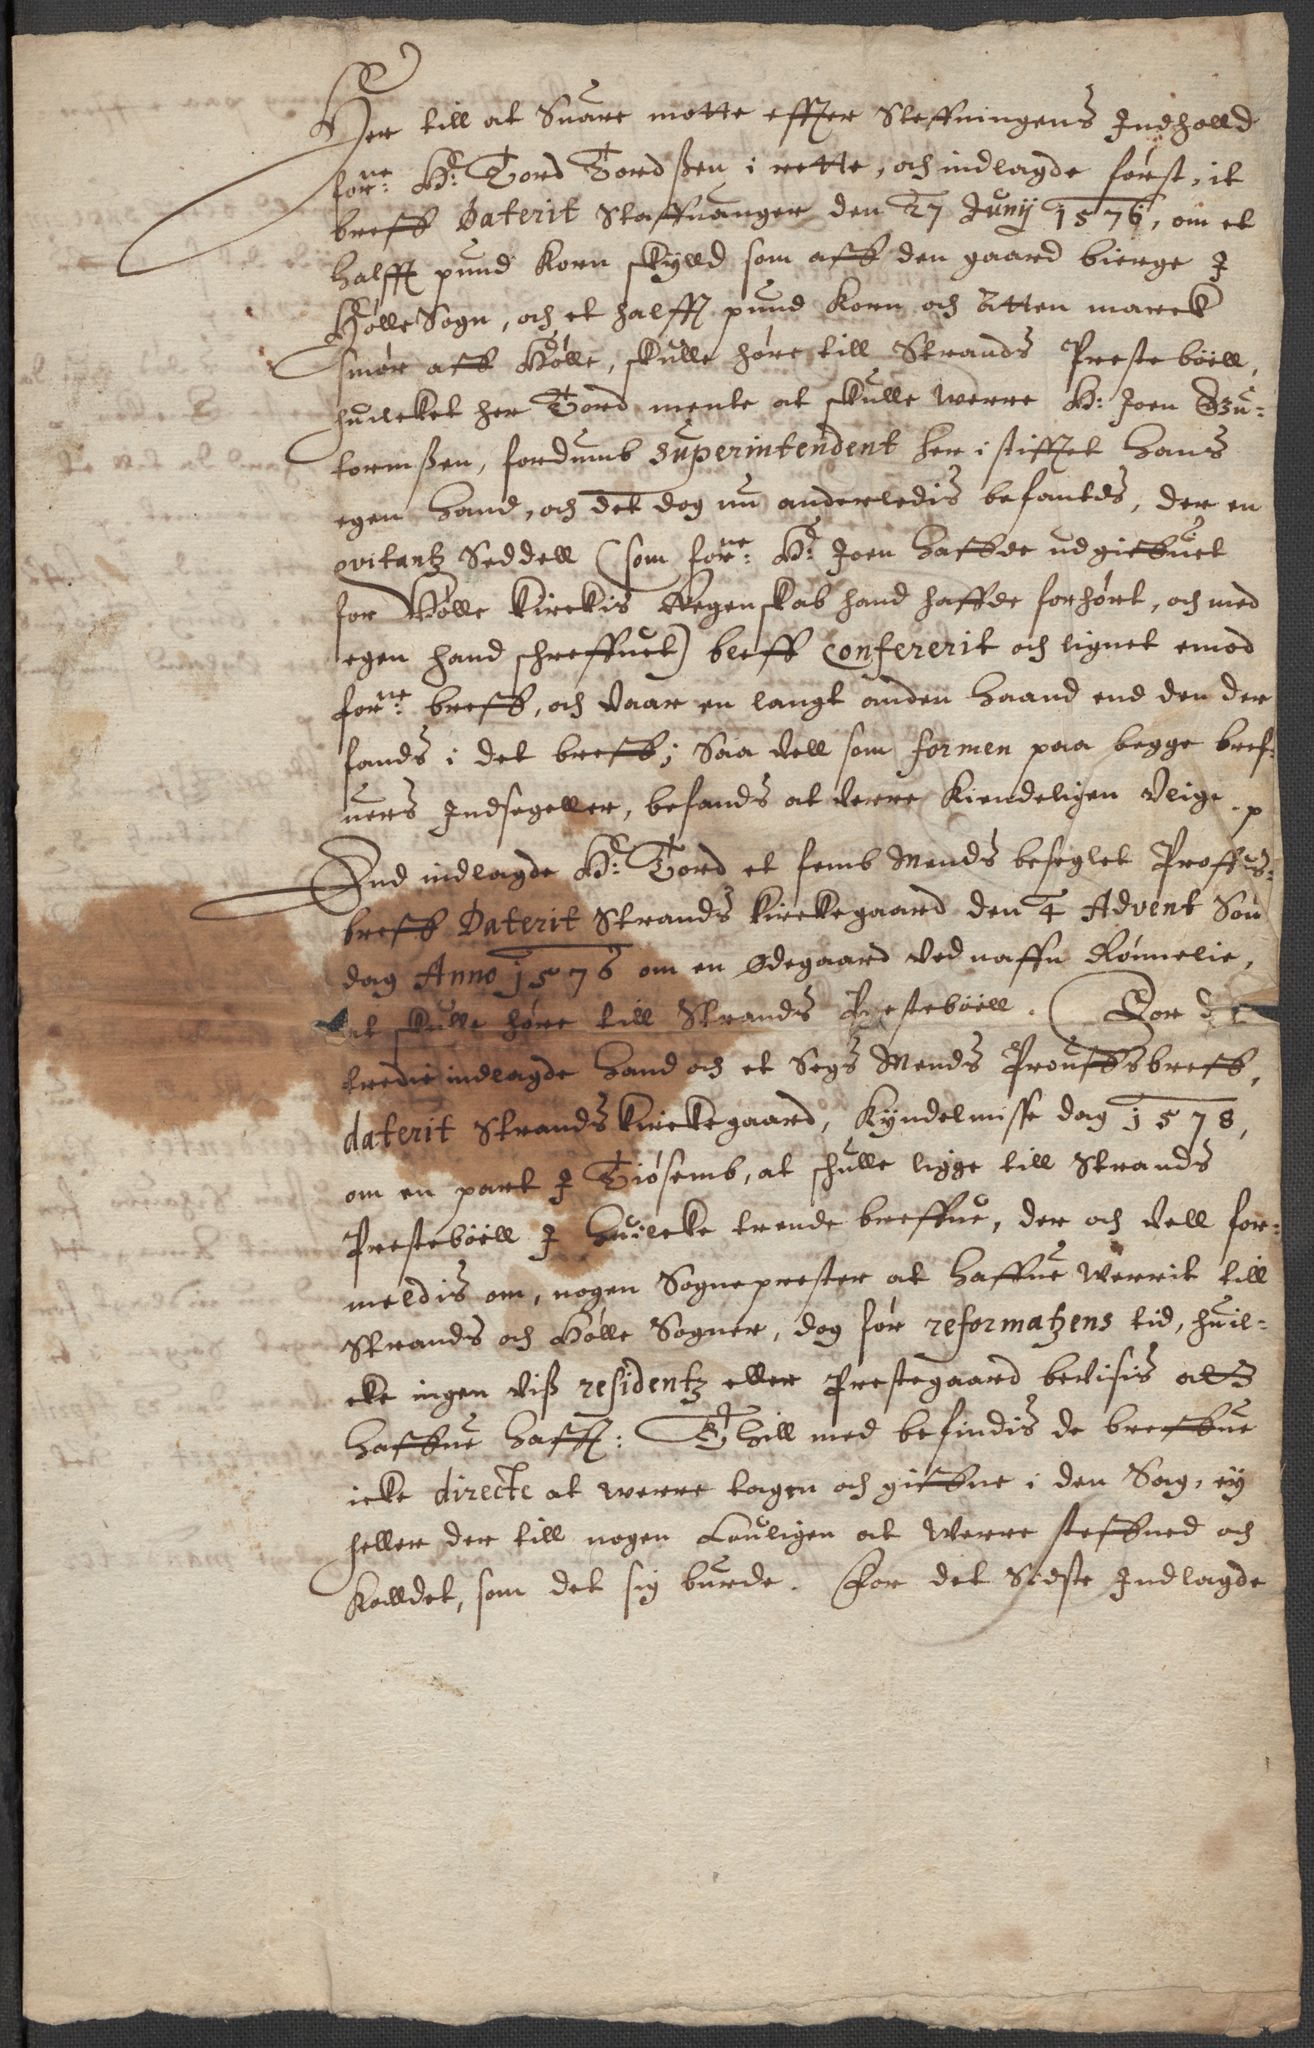 Her till at Suare motte effter Steffningens Indhold
forne: Hr: Tord Tordßen i rette, och indlagde først, it
breff Daterit Staffuanger den 27 Junij 1576, om et
halfft pund Korn skylld som aff den gaard bierge J
Hølle Sogn, och et halfft pund Korn och Atten marck
smør aff Hølle, skulle høre till Strands Prestebøell,
huilcket her Tord mente at skulle werre H: Joen Gu-
tormßen, fordumb Superintendent her i stifftet hans
egen Hand, och det dog nu anderledis befantds, der en
qvitantz Seddell (som forne: Hr: Joen haffde udgiffuet
for Hølle Kirckis Regenskab hand haffde forhørt, och med
egen hand schreffuet) bleff Confererit och lignet emod
forne: breff, och vaar en langt anden Haand end den der
fands i det breff; Saa vell som formen paa begge bref-
uers Indsegeller, befands at verre Kiendeligen Vlige.
End indlagde Hr: Tord et femb Mends beseglet Proffs-
breff Daterit Strands Kirckegaard den 4 Advent Søn
dag Anno 1576 om en Ødegaard ved naffn Rønnelie,
at skulle høre till Strands Prestebøell. For det
tredie indlagde Hand och et Segs Mends Prouffsbreff,
daterit Strands Kirckegaard, Kyndelmisse dag 1578,
om en part J Tiøsemb, at schulle ligge till Strands
Prestebøell J Huilcke trende breffue, der och vell for-
meldis om, nogen Sogneprester at haffue werrit till
Strands och Hølle Sogner, dog før reformatzens tid, huil-
cke ingen viß residentz eller Prestegaard bevisis att
haffue hafft: Thill med befindis de breffue
icke directe at werre tagen och giffne i den Sag, ey
heller der till nogen Lauligen at Werre steffned och
Kalldet, som det sig burde. For det Sidste Indlagde